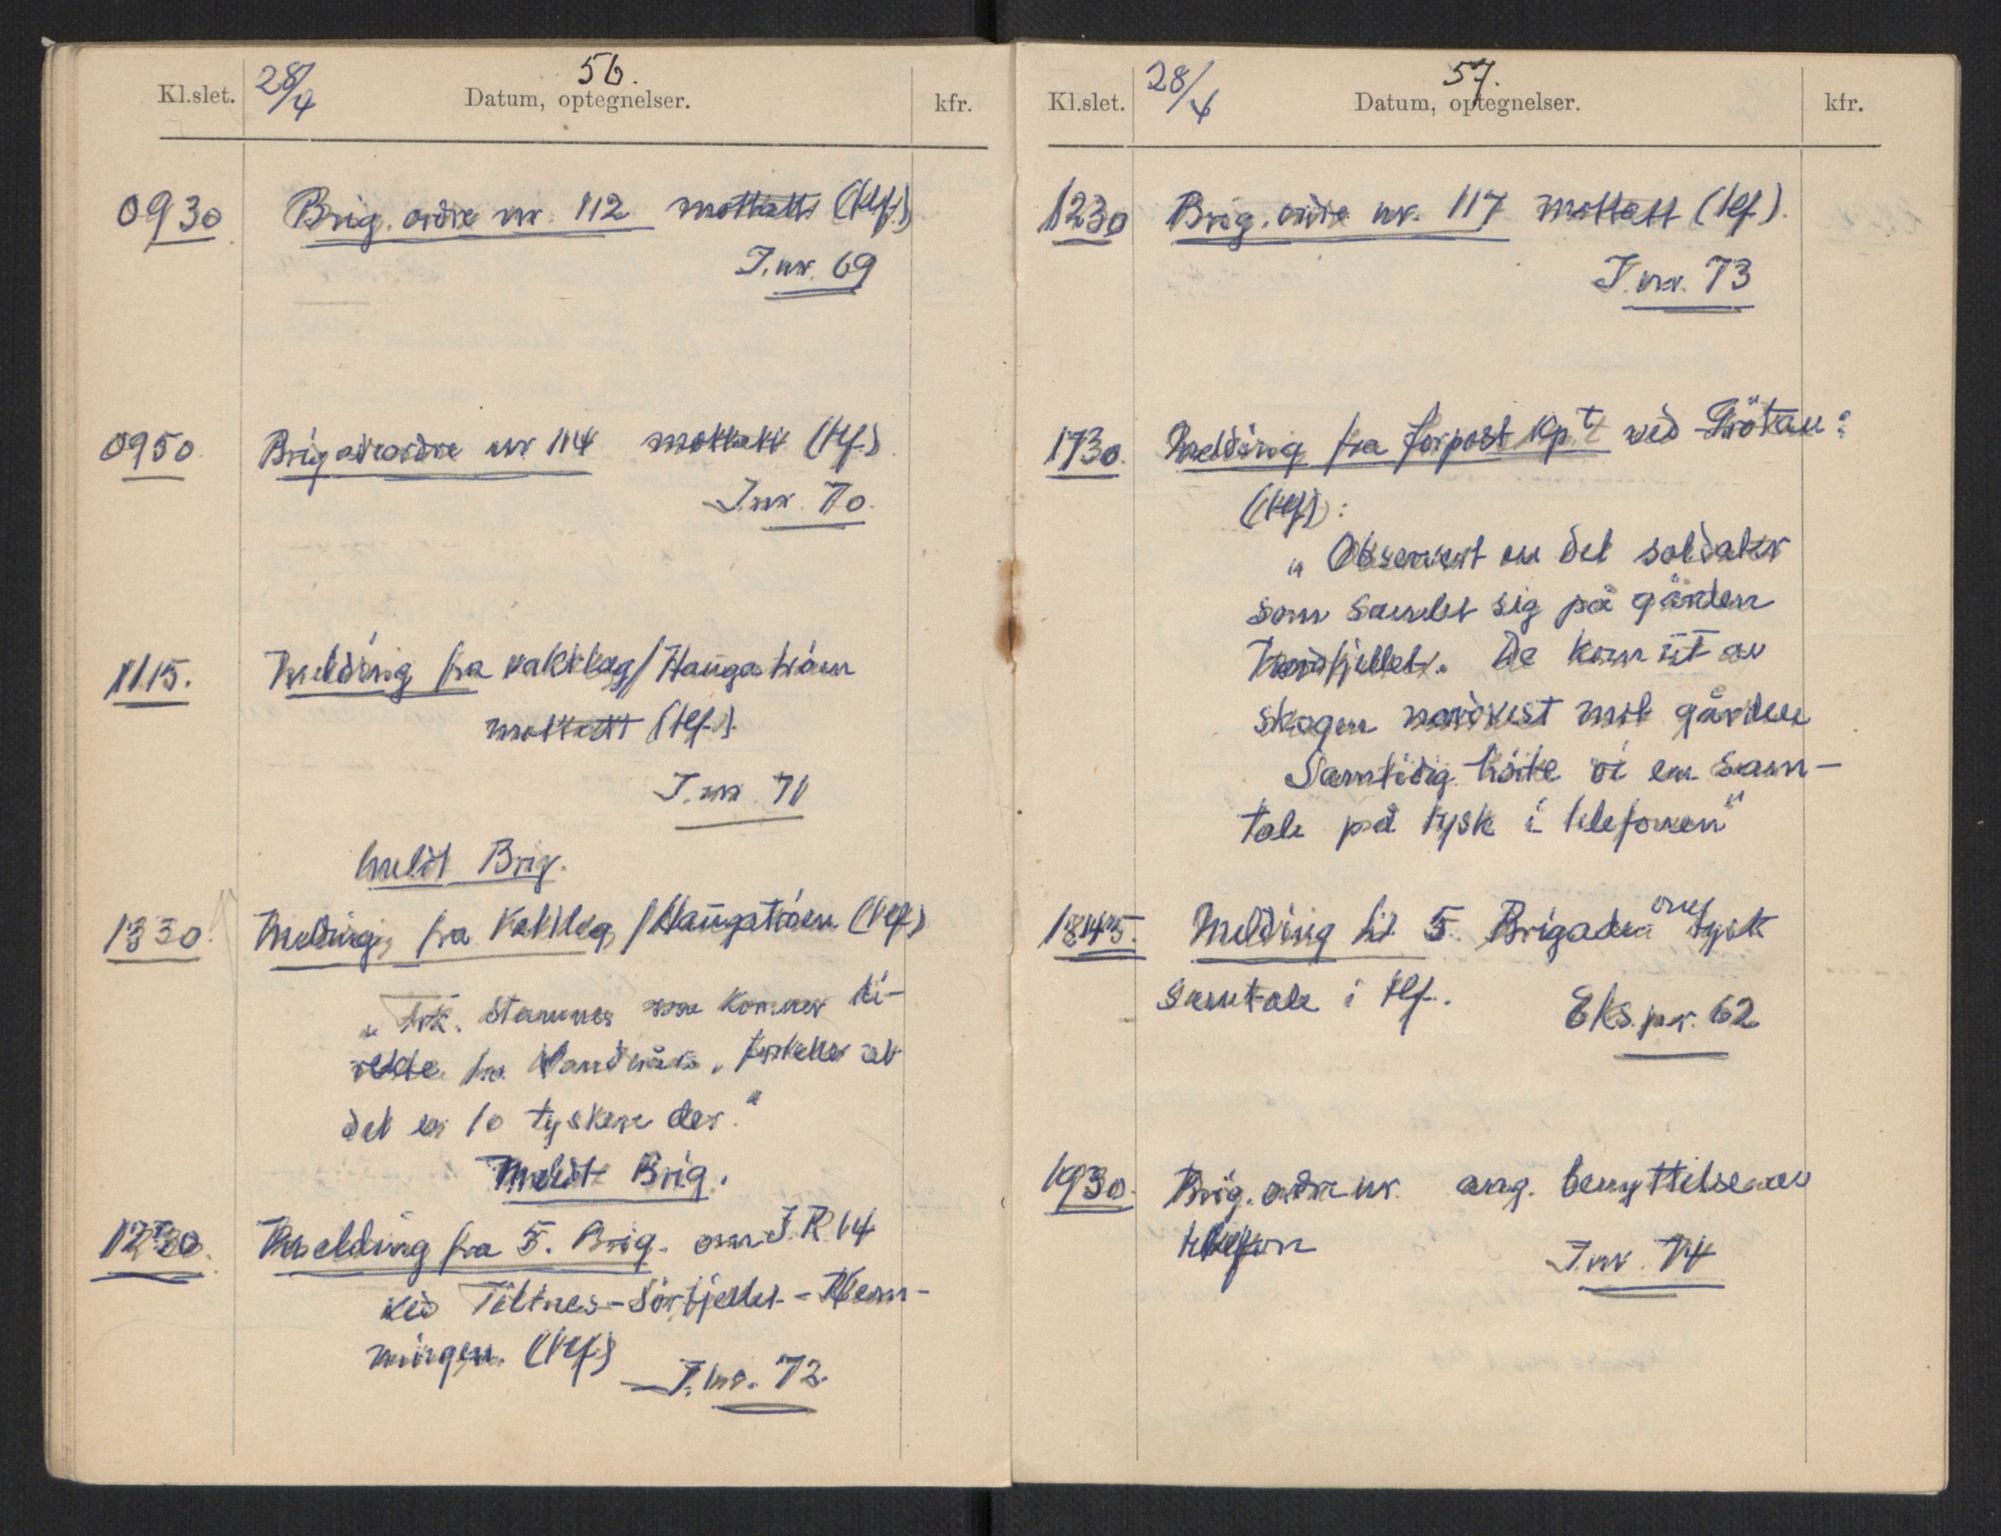 56.
Kl.slet. 28/4 Datum, optegnelser. kfr.
0930 Brig. ordre nr. 112 mottatt (tlf.)
J.nr. 69
0950. Brigadeordre nr 114 mottatt (tlf.)
J.nr. 70.
1115. Melding fra vaktlag/Haugatråen
mottatt (tlf.).
J.nr. 71
Meldt Brig.
1330. Melding fra Vaktlag/Haugatråen (tlf.)
„ Stamnes som kommer di-
rekte fra forteller at
det er 10 tyskere der."
Meldt Brig.
1230. Melding fra 5. Brig. om J.R. 14
ved Tiltnes-Sörfjellet-Hem-
ningen. (tlf.)
J.nr. 72.
57.
Kl.slet. 28/4 Datum, optegnelser. kfr.
1230 Brig. ordre nr. 117 mottatt (tlf.).
J.nr. 73
1730. Melding fra forpost Kpt ved Grötan:
(tlf.):
„ Observert en del soldater
som samlet sig på gården
De kom ut av
skogen nordvest mot gården
Samtidig hörte vi en sam-
tale på tysk i telefonen"
1845. Melding til 5. Brigade om tysk
samtale i tlf.
Eks.nr. 62
1930. Brig. ordre nr. ang. benyttelse av
telefon
J.nr. 74